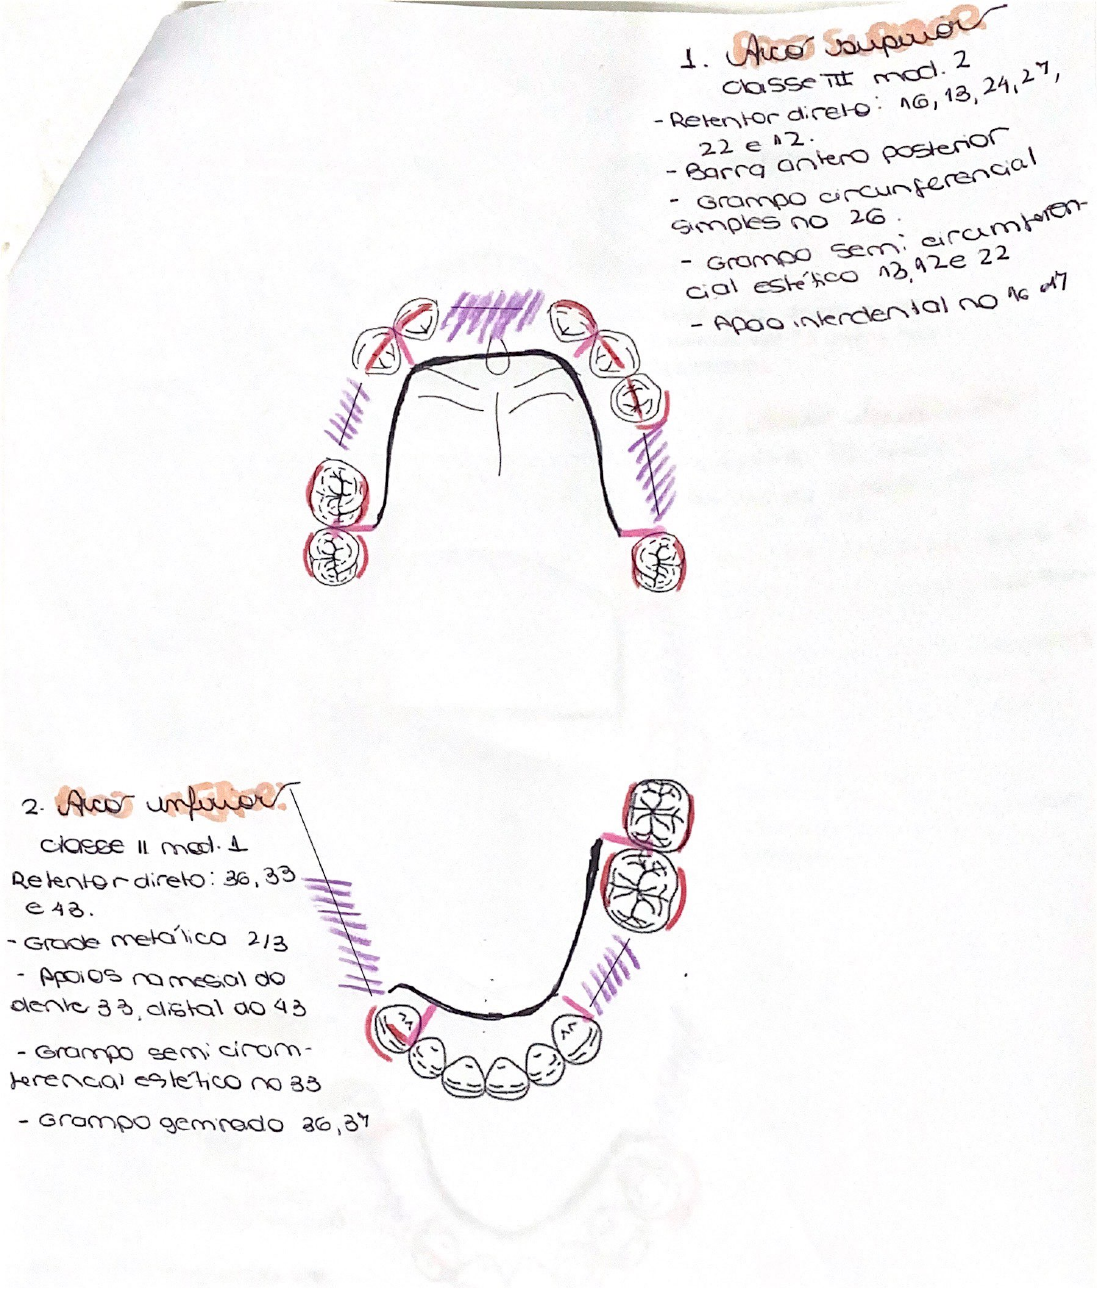 1. Arco superior
classe III mod. 2
- Retentor direto: 16, 13, 24, 27,
22 e 12.
- Barra antero posterior
- Grampo circunferencial
simples no 26.
- Grampo semi circunferen-
cial estético 13, 12 e 22
- Apoio interdental no 16 e 17
2. Arco inferior:
classe II mod. 1
Retentor direto: 36, 33
e 43.
- Grade metálico 2/3
- Apoios na mesial do
dente 33, distal ao 43
- Grampo semi circum-
ferencial estético no 33
- Grampo geminado 36, 37